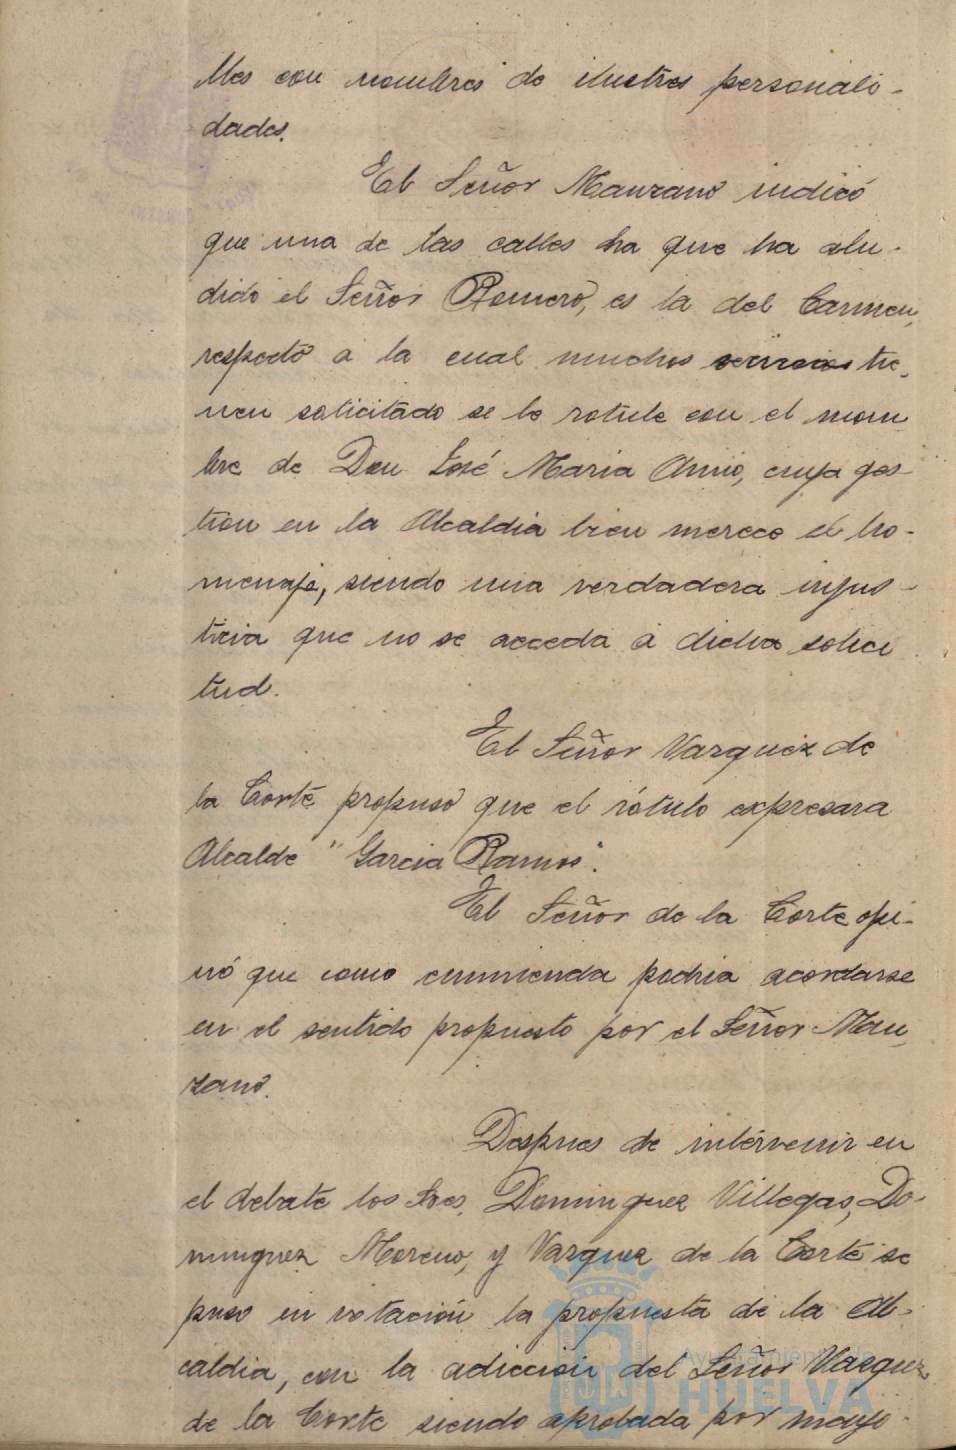 lles con nombres de ilustres personali-
dades.
El Señor Manzano indicó
que una de las calles ha que ha alu-
dido el Señor Romero, es la del Carmen,
respecto a la cual muchos vecinos tie-
nen solicitado se le rotule con el nom
bre de Don José Maria Amo, cuya ges-
tion en la Alcaldia bien merece el ho-
menaje, siendo una verdadera injus-
ticia que no se acceda a dicha solici
tud.
El Señor Vazquez de
la Corte propuso que el rótulo expresara
Alcalde "Garcia Ramos".
El Señor de la Corte opi-
nó que como enmienda podria acordarse
en el sentido propuesto por el Señor Man
zano.
Despues de intervenir en
el debate los Sres. Dominguez Villegas, Do-
minguez Moreno, y Vazquez de la Corte se
puso en votación la propuesta de la Al-
caldia, con la adiccion del Señor Vazquez
de la Corte siendo aprobada por mayo-
Ayuntamiento de
HUELVA